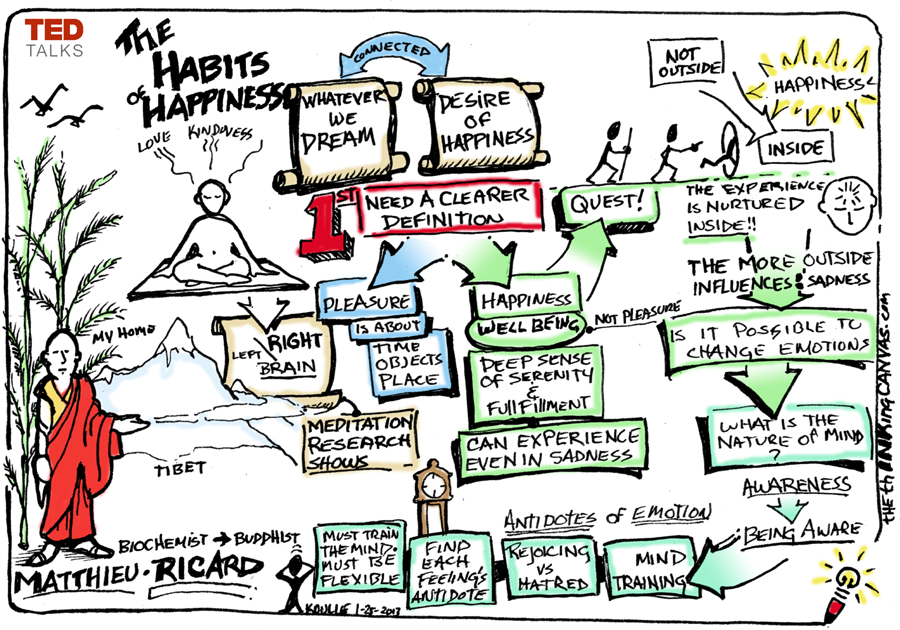 TED
TALKS
THE
HABITS
OF HAPPINESS
CONNECTED
WHATEVER
WE
DREAM
DESIRE
OF
HAPPINESS
NOT
OUTSIDE
HAPPINESS
INSIDE
LOVE KINDNESS
1ST
NEED A CLEARER
DEFINITION
QUEST!
THE EXPERIENCE
IS NURTURED
INSIDE!!
THE MORE OUTSIDE
INFLUENCES: SADNESS
PLEASURE
IS ABOUT
TIME
OBJECTS
PLACE
HAPPINESS
WELL BEING
NOT PLEASURE
DEEP SENSE
OF SERENITY
&
FULLFILLMENT
CAN EXPERIENCE
EVEN IN SADNESS
IS IT POSSIBLE TO
CHANGE EMOTIONS
WHAT IS THE
NATURE OF MIND
?
AWARENESS
BEING AWARE
MY HOME
LEFT RIGHT
BRAIN
MEDITATION
RESEARCH
SHOWS
TIBET
ANTIDOTES OF EMOTION
MUST TRAIN
THE MIND.
MUST BE
FLEXIBLE
FIND
EACH
FEELING'S
ANTIDOTE
REJOICING
VS
HATRED
MIND
TRAINING
BIOCHEMIST → BUDDHIST
MATTHIEU · RICARD
1-25-2013
the thINKingCANVAS.com